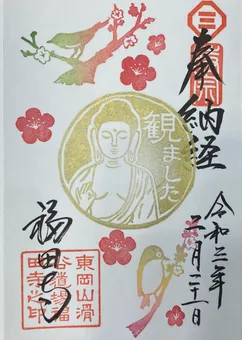 三
奉納経
観ました
令和三年
二月二十一日
福田寺
東岡山滑
谷道場福
田寺之印